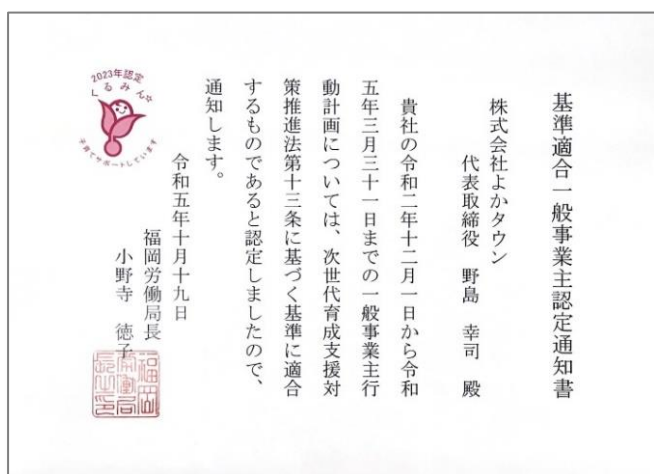 基準適合一般事業主認定通知書
株式会社よかタウン
代表取締役 野島 幸司 殿
貴社の令和二年十二月一日から令和
五年三月三十一日までの一般事業主行
動計画については、次世代育成支援対
策推進法第十三条に基づく基準に適合
するものであると認定しましたので、
通知します。
令和五年十月十九日
福岡労働局長
小野寺 徳子
福岡
労働局
長之印
2023年認定
くるみん
子育てサポートしています